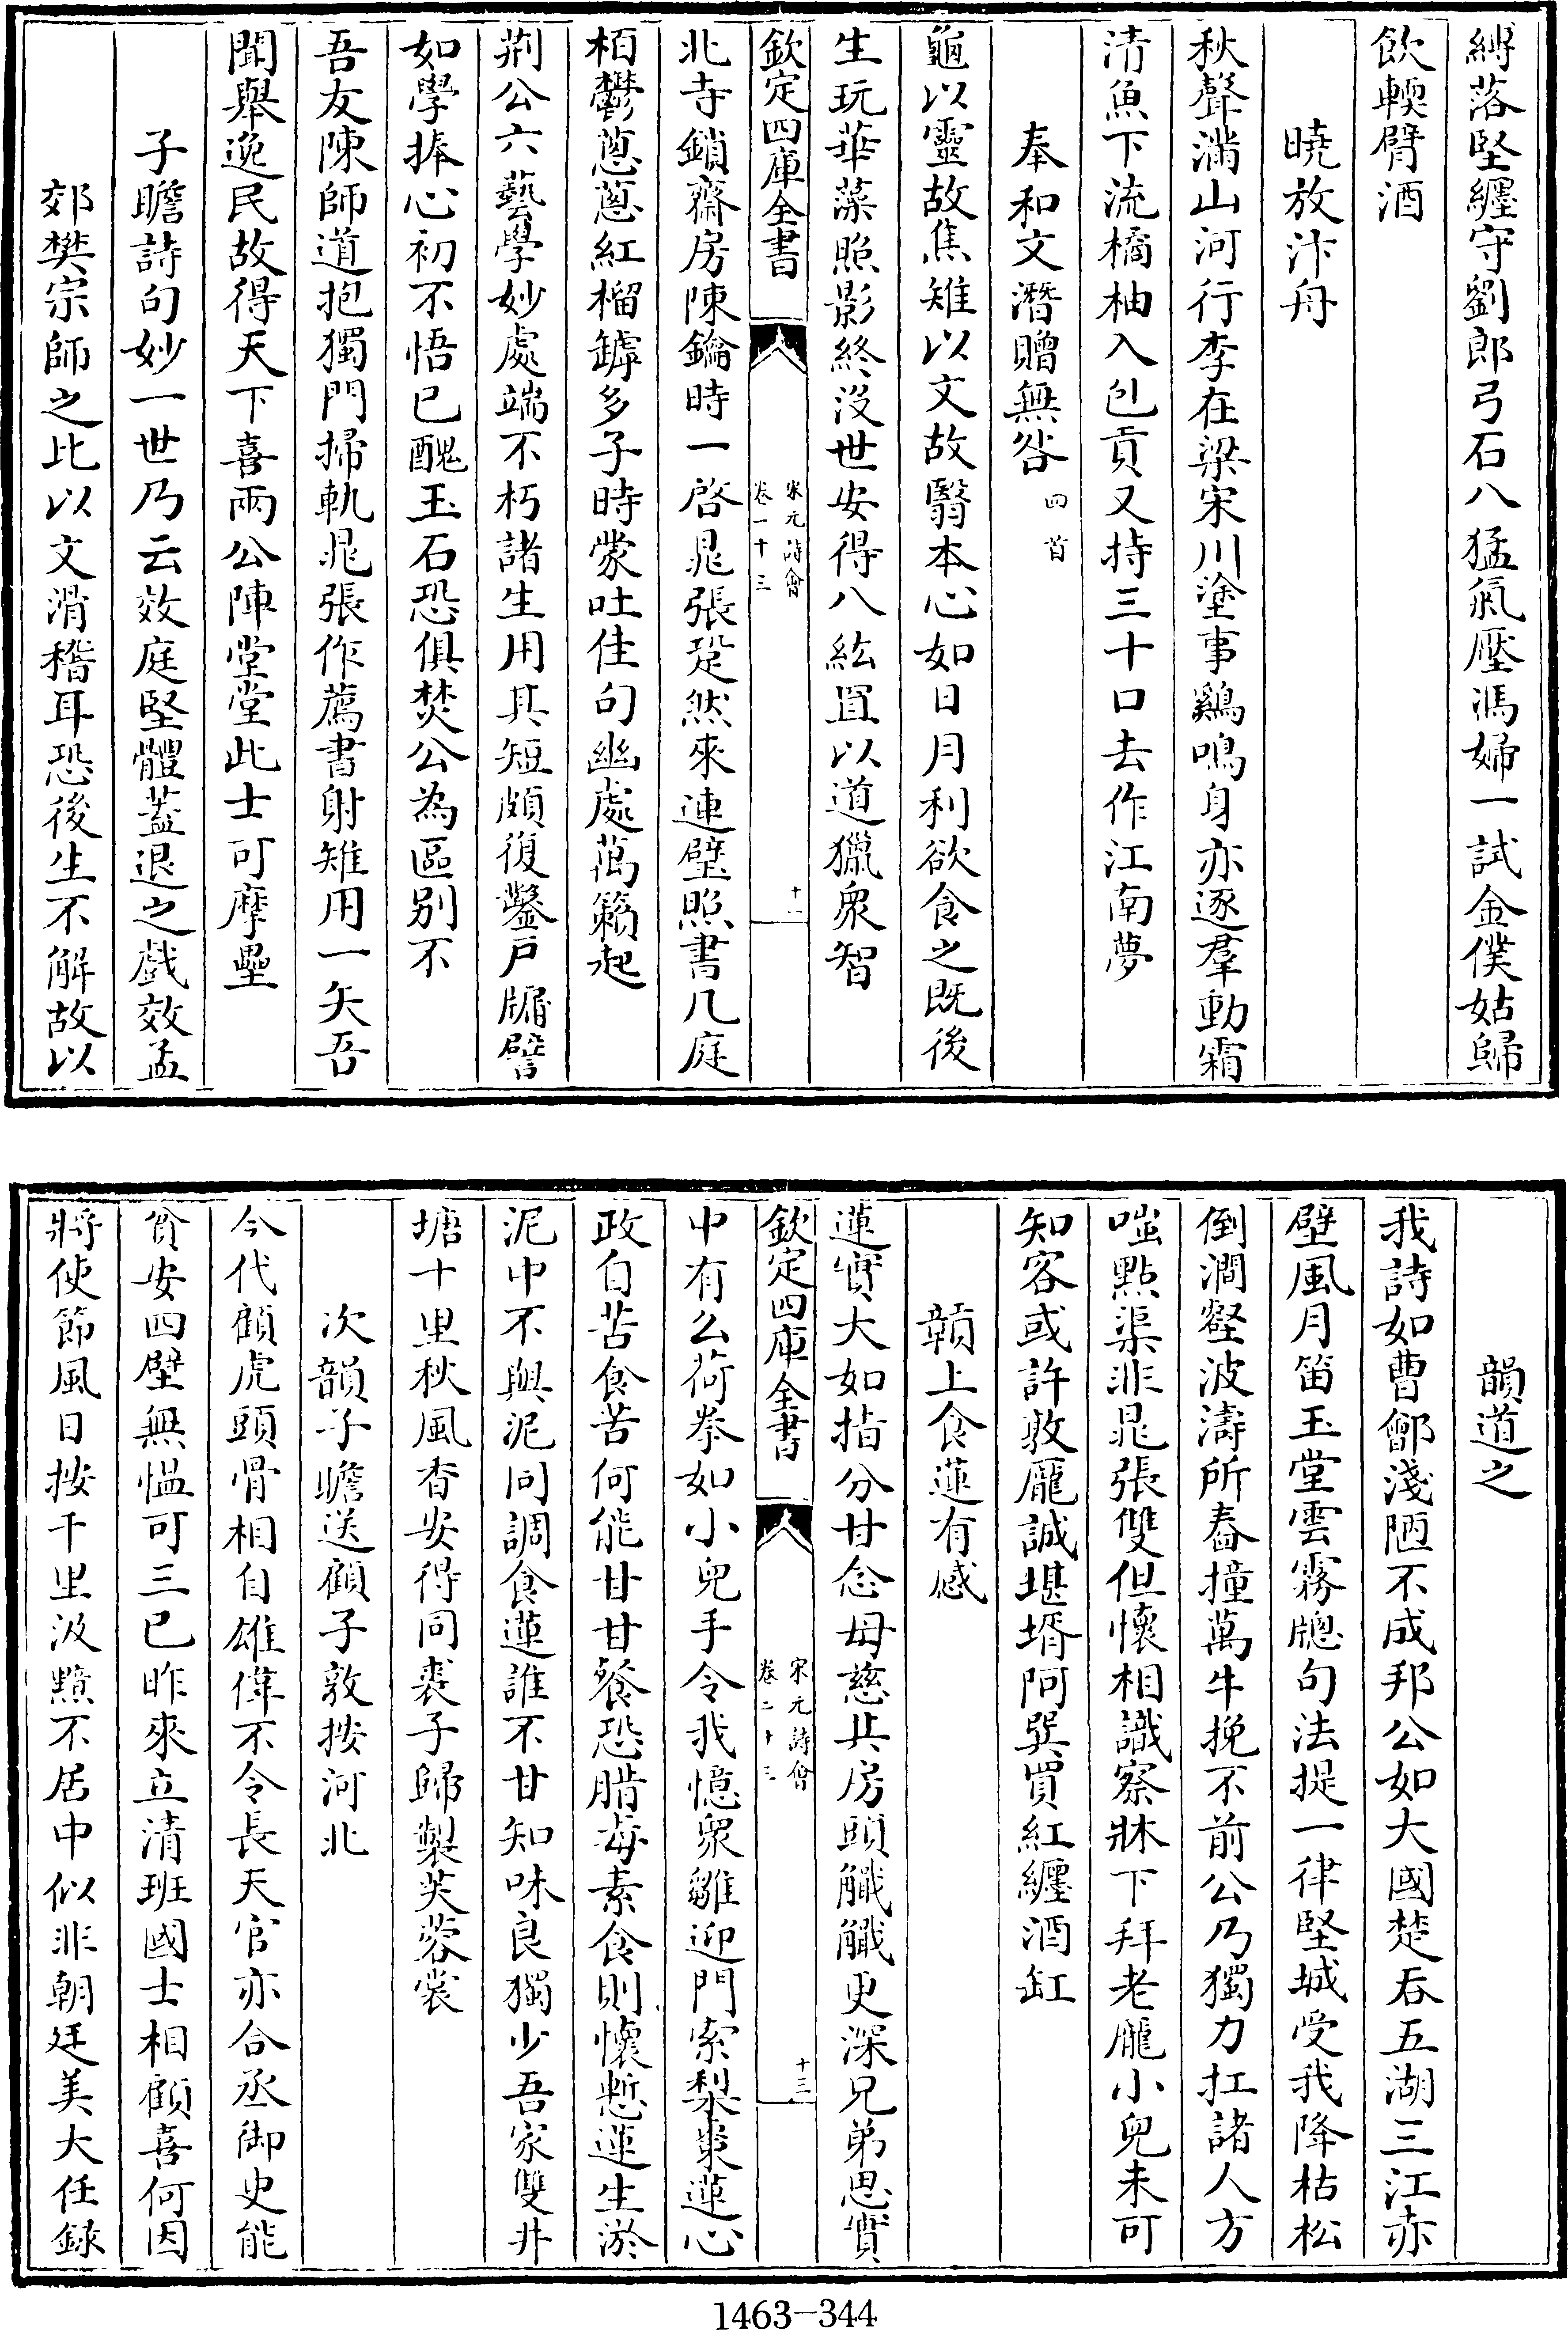 縛落堅纏守劉郎弓石八猛氣壓馮婦一試金僕姑歸
飲輭臂酒
曉放汴舟
秋聲滿山河行李在梁宋川塗事鷄鳴身亦逐羣動霜
清魚下流橘柚入包貢又持三十口去作江南夢
奉和文潛贈無咎四首
龜以靈故焦雉以文故翳本心如日月利欲食之既後
生玩華藻照影終沒世安得八紘罝以道獵衆智
欽定四庫全書
宋元詩會
卷二十三
十二
北寺鎖齋房陳鑰時一啓晁張跫然來連璧照書几庭
栢鬱蔥蔥紅榴罅多子時蒙吐佳句幽處萬籟起
荆公六藝學妙處端不朽諸生用其短頗復鑿戶牖譬
如學捧心初不悟已醜玉石恐俱焚公為區别不
吾友陳師道抱獨門掃軌晁張作薦書射雉用一矢吾
聞舉逸民故得天下喜兩公陣堂堂此士可摩壘
子瞻詩句妙一世乃云效庭堅體蓋退之戲效孟
郊樊宗師之比以文滑稽耳恐後生不解故以
韻道之
我詩如曹鄶淺陋不成邦公如大國楚吞五湖三江赤
壁風月笛玉堂雲霧牕句法提一律堅城受我降枯松
倒澗壑波濤所舂撞萬牛挽不前公乃獨力扛諸人方
嗤點渠非晁張雙但懷相識察牀下拜老龐小兒未可
知客或許敦龐誠堪壻阿巽買紅纏酒缸
贛上食蓮有感
蓮實大如指分甘念母慈共房頭觺觺更深兄弟思實
欽定四庫全書
宋元詩會
卷二十三
十三
中有么荷拳如小兒手令我憶衆雛迎門索梨棗蓮心
政自苦食苦何能甘甘餐恐腊毒素食則懷慙蓮生淤
泥中不與泥同調食蓮誰不甘知味良獨少吾家雙井
塘十里秋風香安得同裘子歸製芙蓉裳
次韻子瞻送顧子敦按河北
今代顧虎頭骨相自雄偉不令長天官亦合丞御史能
貧安四壁無愠可三已昨來立清班國士相顧喜何因
將使節風日按千里汲黯不居中似非朝廷美大任錄
1463-344